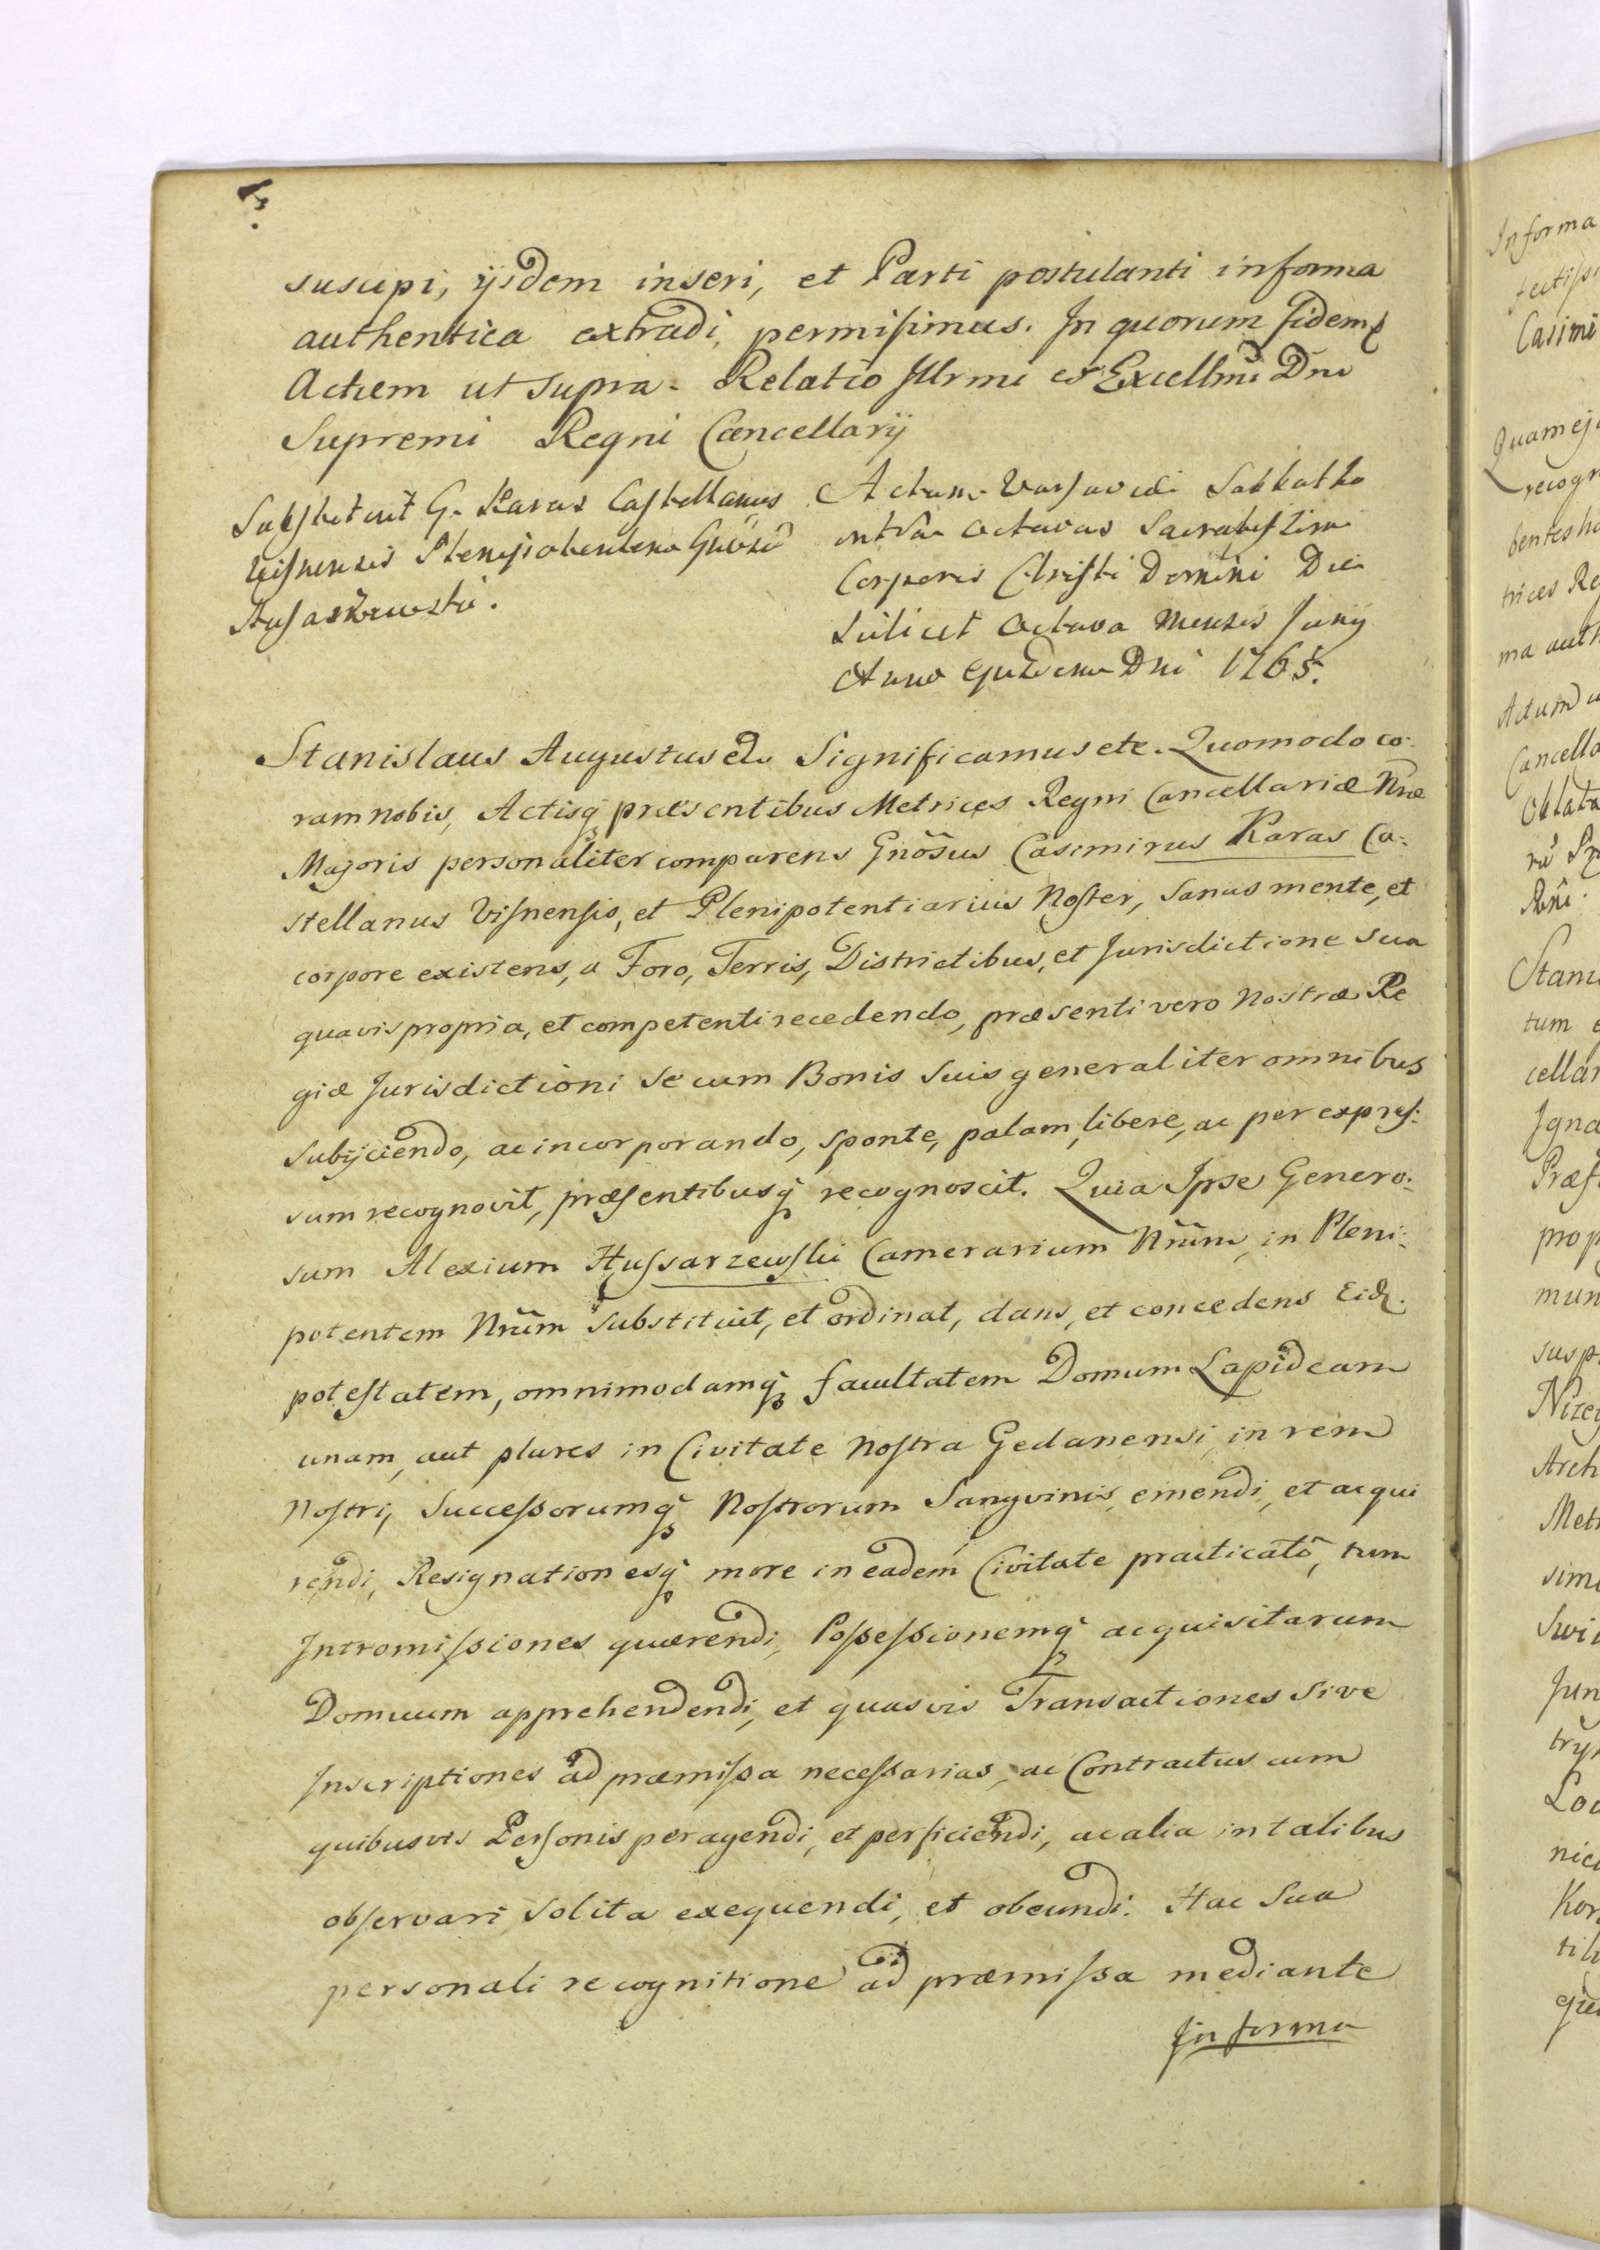 suscipi, ijsdem inseri, et Parti postulanti in forma
authentica extradi, permisimus. In quorum fidem
Actum ut supra. Relatio Illrmi et Excellmi Dni
Supremi Regni Cancellarij
Substituit G. Karas Castellanus
Visnensis Plenipotentem Gnosũ
Husarzewski.
Actum Varsaviæ Sabbatho
intra octavas Sacratissimi
Corporis Christi Domini Die
scilicet octava Mensis Junij
Anno ejusdem Dni 1765.
Stanislaus Augustus etc. Significamus etc. Quomodo co-
ram nobis, Actisq præsentibus Metrices Regni Cancellariæ Nræ
Majoris personaliter comparens Gnõsus Casimirus Karas Ca-
stellanus Visnensis, et Plenipotentiarius Noster, sanus mente, et
corpore existens, a Foro, Terris, Districtibus, et Jurisdictione sua
quavis propria, et competenti recedendo, præsenti vero Nostræ Re
giæ Jurisdictioni se cum Bonis suis generaliter omnibus
subijciendo, ac incorporando, sponte, palam, libere, ac per expres-
sum recognovit, præsentibusq recognoscit. Quia Ipse Genero-
sum Alexium Hussarzewski Camerarium Nrum, in Pleni-
potentem Nrum substituit, et ordinat, dans, et concedens Eid.
potestatem, omnimodamq facultatem Domum Lapideam
unam, aut plures in Civitate Nostra Gedanensi, in rem
Nostri, Successorumq Nostrorum Sangvinis, emendi, et acqui
rendi, Resignationesq more in eadem Civitate practicatô, tum
Intromissiones quærendi, Possessionemq acquisitarum
Domuum apprehendendi, et quasvis Transactiones sive
Inscriptiones ad præmissa necessarias, ac Contractus cum
quibusvis Personis peragendi, et perficiendi, ac alia in talibus
observari solita exequendi, et obeundi. Hac sua
personali recognitione ad præmissa mediante
In forma
In forma
Casimi
Quam ej
recogn
bentes
trices Re
ma auth
Actum u
Cancella
Oblata
Stani
tum
cellar
Igna
Præf
prop
mun
susp
Arch
Metr
sim
Swi
Jun
Lov
nic
Kor